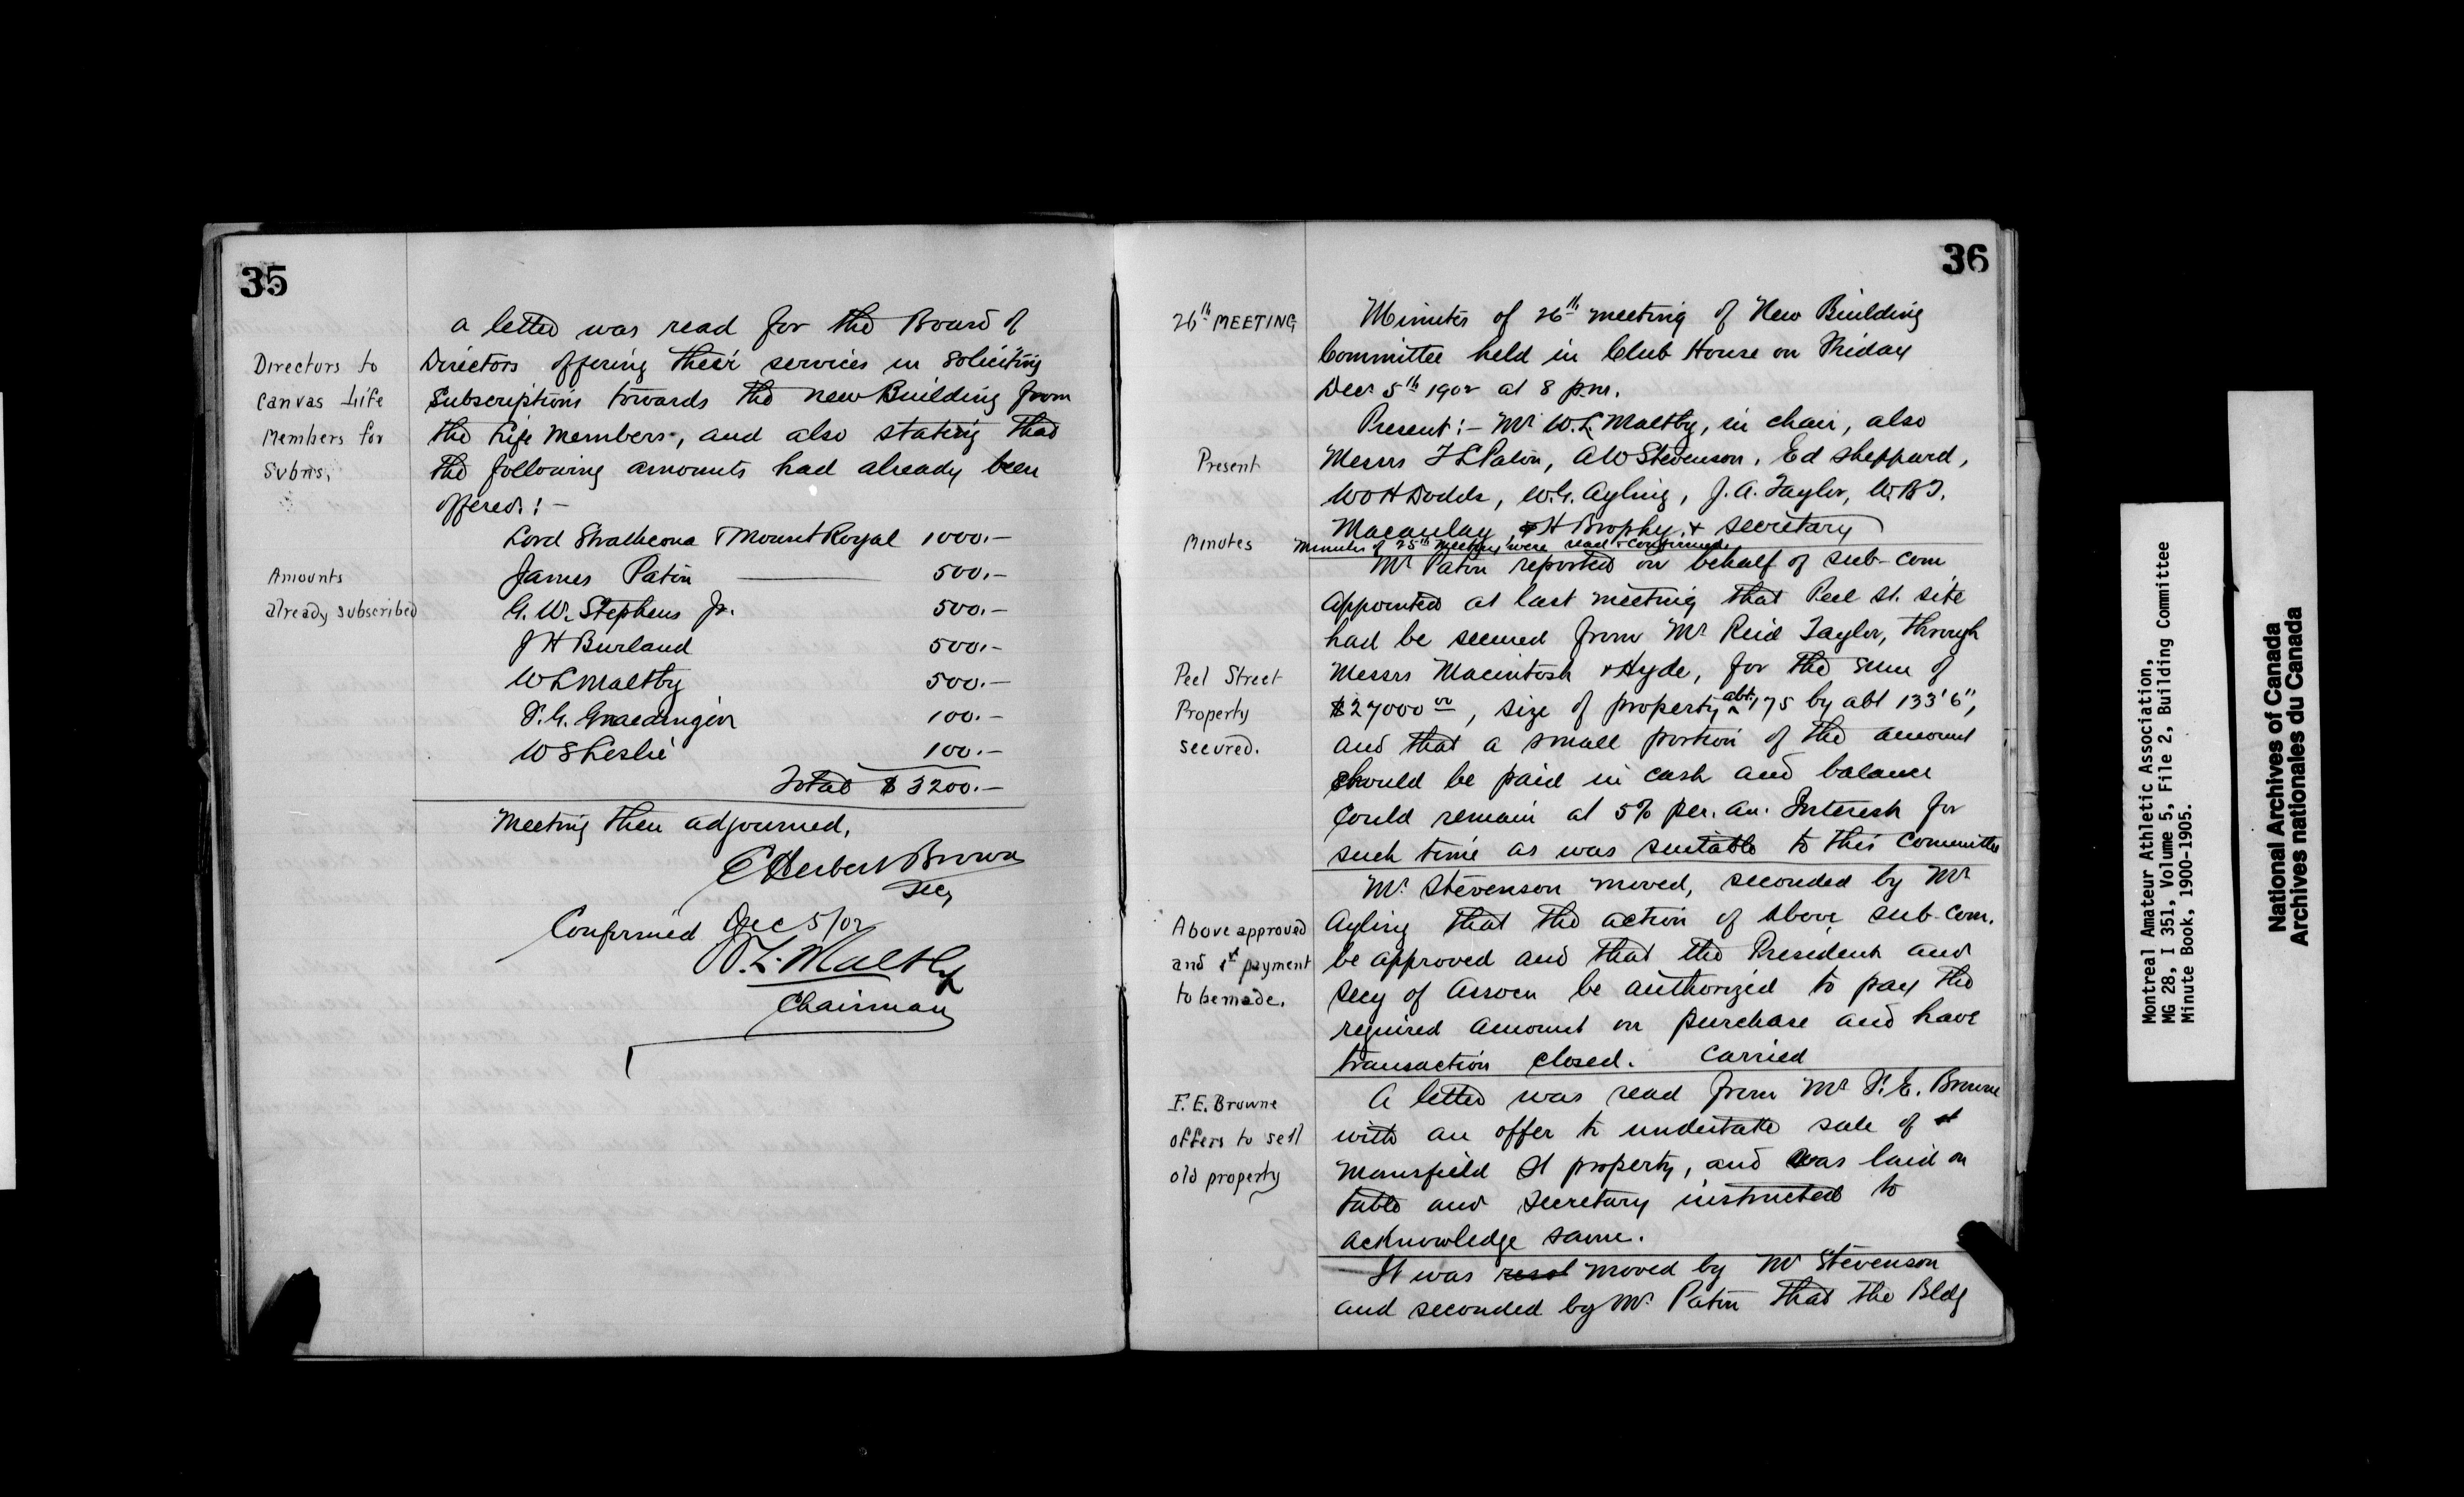 35
a letter was read for the Board of
Directors to
Canvas Life
Members for
Subns.
Directors offering their services in soliciting
Subscriptions towards the new Building from
the Life Members, and also stating that
the following amounts had already been
offered:-
Amounts
already subscribed
Lord Strathcona & Mount Royal 1000.-
James Paton 500.-
G. W. Stephens Jr. 500.-
J H Burland 500.-
W L Maltby 500.-
100.-
W S Leslie 100.-
Total $3200.-
Meeting then adjourned.
C Herbert Brown
Secy
Confirmed Dec 5/02
W. L. Maltby
Chairman
36
26th MEETING
Minutes of 26th meeting of New Building
Committee held in Club House on Friday
Dec 5th 1902 at 8 p.m.
Present
Present:- Mr W. L. Maltby, in chair, also
Messrs T L Paton, A W Stevenson, Ed Sheppard,
W H Dodds, W. G. Ayling, J. A. Taylor, W B T.
Macaulay, H Brophy, & Secretary
Minutes
Minutes of 25th Meeting were read & confirmed.
Mr Paton reported on behalf of sub-com
appointed at last meeting that Peel St. site
had be secured from Mr Reid Taylor, through
Peel Street
Property
secured.
Messrs Macintosh & Hyde, for the sum of
$27000 00, size of property abt. 175 by abt 133'6",
and that a small portion of the amount
should be paid in cash and balance
could remain at 5% per. an. Interest for
such time as was suitable to this Committee
Above approved
and 1st payment
to be made.
Mr. Stevenson moved, seconded by Mr
Ayling that the action of above sub-com.
be approved and that the President and
Secy of Assocn be authorized to pay the
required amount on purchase and have
transaction closed. Carried
F. E. Browne
offers to sell
old property
A letter was read from Mr F. E. Browne
with an offer to undertake sale of
Mansfield St property, and was laid on
table and Secretary instructed to
acknowledge same.
It was resol moved by Mr Stevenson
and seconded by Mr. Paton that the Bldg
Montreal Amateur Athletic Association,
MG 28, I 351, Volume 5, File 2, Building Committee
Minute Book, 1900-1905.
National Archives of Canada
Archives nationales du Canada